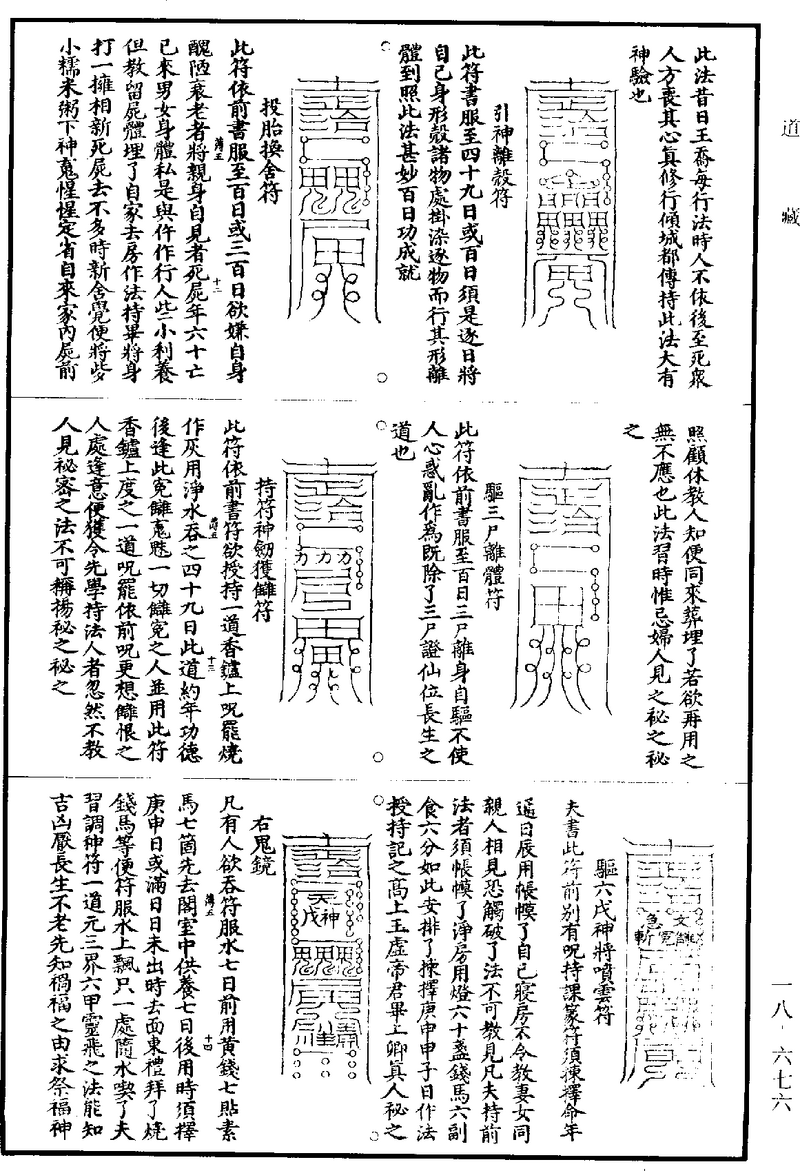 道藏
此法昔日王喬每行法時人不依後至死衆
人方喪其心真修行傾城都傳持此法大有
神驗也
引神離殼符
此符書服至四十九日或百日須是逐日將
自己身形殼諸物處掛染逐物而行其形離
體到照此法甚妙百日功成就
投胎換舍符
此符依前書服至百日或三百日欲嫌自身
醜陋衰老者將親身自見者死屍年六十亡
已來男女身體私是與仵作行人些小利養
但教留屍體埋了自家去房作法持畢將身
打一擁相新死屍去不多時新舍覺便將些少
小糯米粥下神䰟惺惺定省自來家內屍前
照顧休教人知便同來葬埋了若欲再用之
無不應也此法習時惟忌婦人見之祕之祕
之
驅三尸離體符
此符依前書服至百日三尸離身自驅不使
人心惑亂作為既除了三尸證仙位長生之
道也
持符神劒獲讎符
此符依前書符欲授持一道香鑪上呪罷燒
作灰用淨水吞之四十九日此道約年功德
後逢此冤讎䰟魅一切讎冤之人並用此符
香鑪上度之一道呪罷依前呪更想讎恨之
人處逢意便獲令先學持法人者忽然不教
人見祕密之法不可稱揚祕之祕之
驅六戌神將噴雲符
夫書此符前別有呪持課篆符須揀擇命年
逼日辰用帳幙了自己寢房不令教妻女同
親人相見恐觸破了法不可教見凡夫持前
法者須帳幙了淨房用燈六十盞錢馬六副
食六分如此安排了揀擇庚申甲子日作法
授持記之髙上玉虛帝君畢上卿真人祕之
右鬼鏡
凡有人欲吞符服水七日前用黄錢七貼素
馬七箇先去閣室中供養七日後用時須擇
庚申日或滿日日未出時去面東禮拜了燒
錢馬等便符服水上飄只一處隨水喫了夫
習調神符一道元三界六甲靈飛之法能知
吉凶厭長生不老先知禍福之由求祭福神
一八·六七六